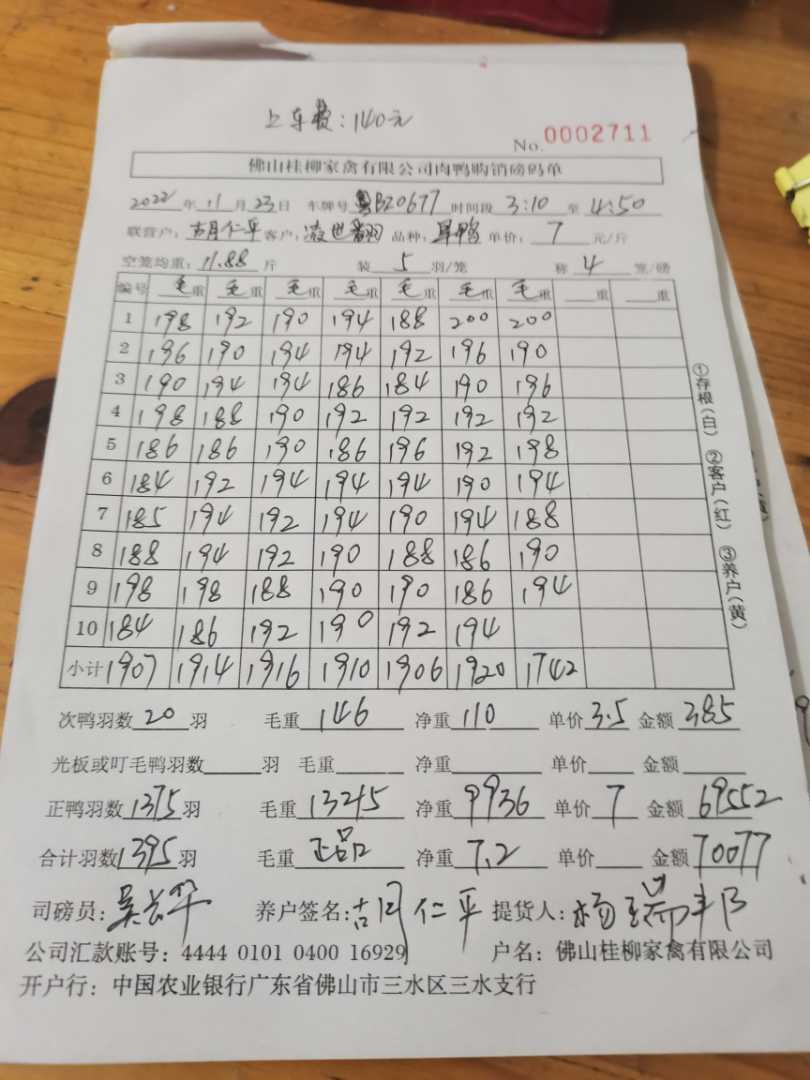 上车费：140元
No. 0002711
佛山桂柳家禽有限公司肉鸭购销磅码单
2022年11月23日 车牌号粤BZ0677时间段3:10至4:50
联营户：胡仁平客户：凌世翻品种：单价：7元/斤
空笼均重：11.88斤 装5羽/笼 称4笼/磅
编号 毛重 毛重 毛重 毛重 毛重 毛重 毛重 重 重
1 198 192 190 194 188 200 200
2 196 190 194 194 192 196 190
3 190 194 194 186 184 190 196
4 198 188 190 192 192 192 192
5 186 186 190 186 196 192 198
6 184 192 194 194 194 190 194
7 185 194 192 194 190 194 188
8 188 194 192 190 188 186 190
9 198 198 188 190 190 186 194
10 184 186 192 190 192 194
小计 1907 1914 1916 1910 1906 1920 1742
次鸭羽数20羽 毛重146 净重110 单价3.5 金额385
光板或叮毛鸭羽数 羽 毛重 净重 单价 金额
正鸭羽数1375羽 毛重13215 净重9936 单价7 金额69552
合计羽数1395羽 毛重正品 净重7.2 单价 金额70077
司磅员：吴长华 养户签名：胡仁平 提货人：杨瑞邦
公司汇款账号：4444 0101 0400 16929 户名：佛山桂柳家禽有限公司
开户行：中国农业银行广东省佛山市三水区三水支行
①存根（白） ②客户（红） ③养户（黄）